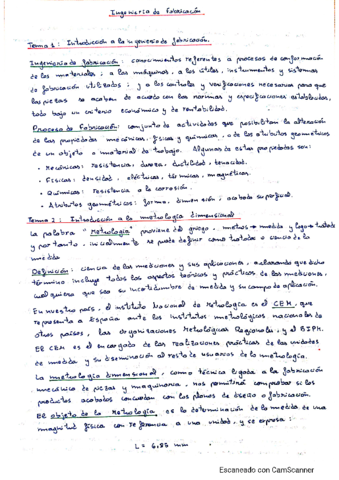 Ingeniería de Fabricación
Tema 1: Introducción a la ingeniería de fabricación.
Ingeniería de fabricación: conocimientos referentes a procesos de conformación
de los materiales; a las máquinas, a los útiles, instrumentos y sistemas
de fabricación utilizados; y a los controles y verificaciones necesarias para que
las piezas se acaben de acuerdo con las normas y especificaciones establecidas,
todo bajo un criterio económico y de rentabilidad.
Proceso de Fabricación: conjunto de actividades que posibilitan la alteración
de las propiedades mecánicas, físicas y químicas, o de los atributos geométricos
de un objeto o material de trabajo. Algunas de estas propiedades son:
• Mecánicas: resistencia, dureza, ductilidad, tenacidad.
• Físicas: densidad, eléctricas, térmicas, magnéticas.
• Químicas: resistencia a la corrosión.
• Atributos geométricos: forma, dimensión, acabado superficial.
Tema 2: Introducción a la metrología dimensional
La palabra "Metrología" proviene del griego, metros = medida y logos = tratado
y por tanto, inicialmente se puede definir como tratado o ciencia de la
medida
Definición: ciencia de las mediciones y sus aplicaciones, aclarando que dicho
término incluye todos los aspectos teóricos y prácticos de las mediciones,
cualquiera que sea su incertidumbre de medida y su campo de aplicación.
En nuestro país, el instituto Nacional de Metrología es el CEM, que
representa a España ante los institutos metrológicos nacionales de
otros países, las organizaciones Metrológicas Regionales, y al BIPM.
El CEM es el encargado de las realizaciones prácticas de las unidades
de medida y su diseminación al resto de usuarios de la metrología.
La metrología dimensional, como técnica ligada a la fabricación
mecánica de piezas y maquinaria, nos permitirá comprobar si los
productos acabados concuerdan con los planos de diseño o fabricación.
El objeto de la Metrología es la determinación de la medida de una
magnitud física con referencia a una unidad, y se expresa:
L = 6.85 mm
Escaneado con CamScanner